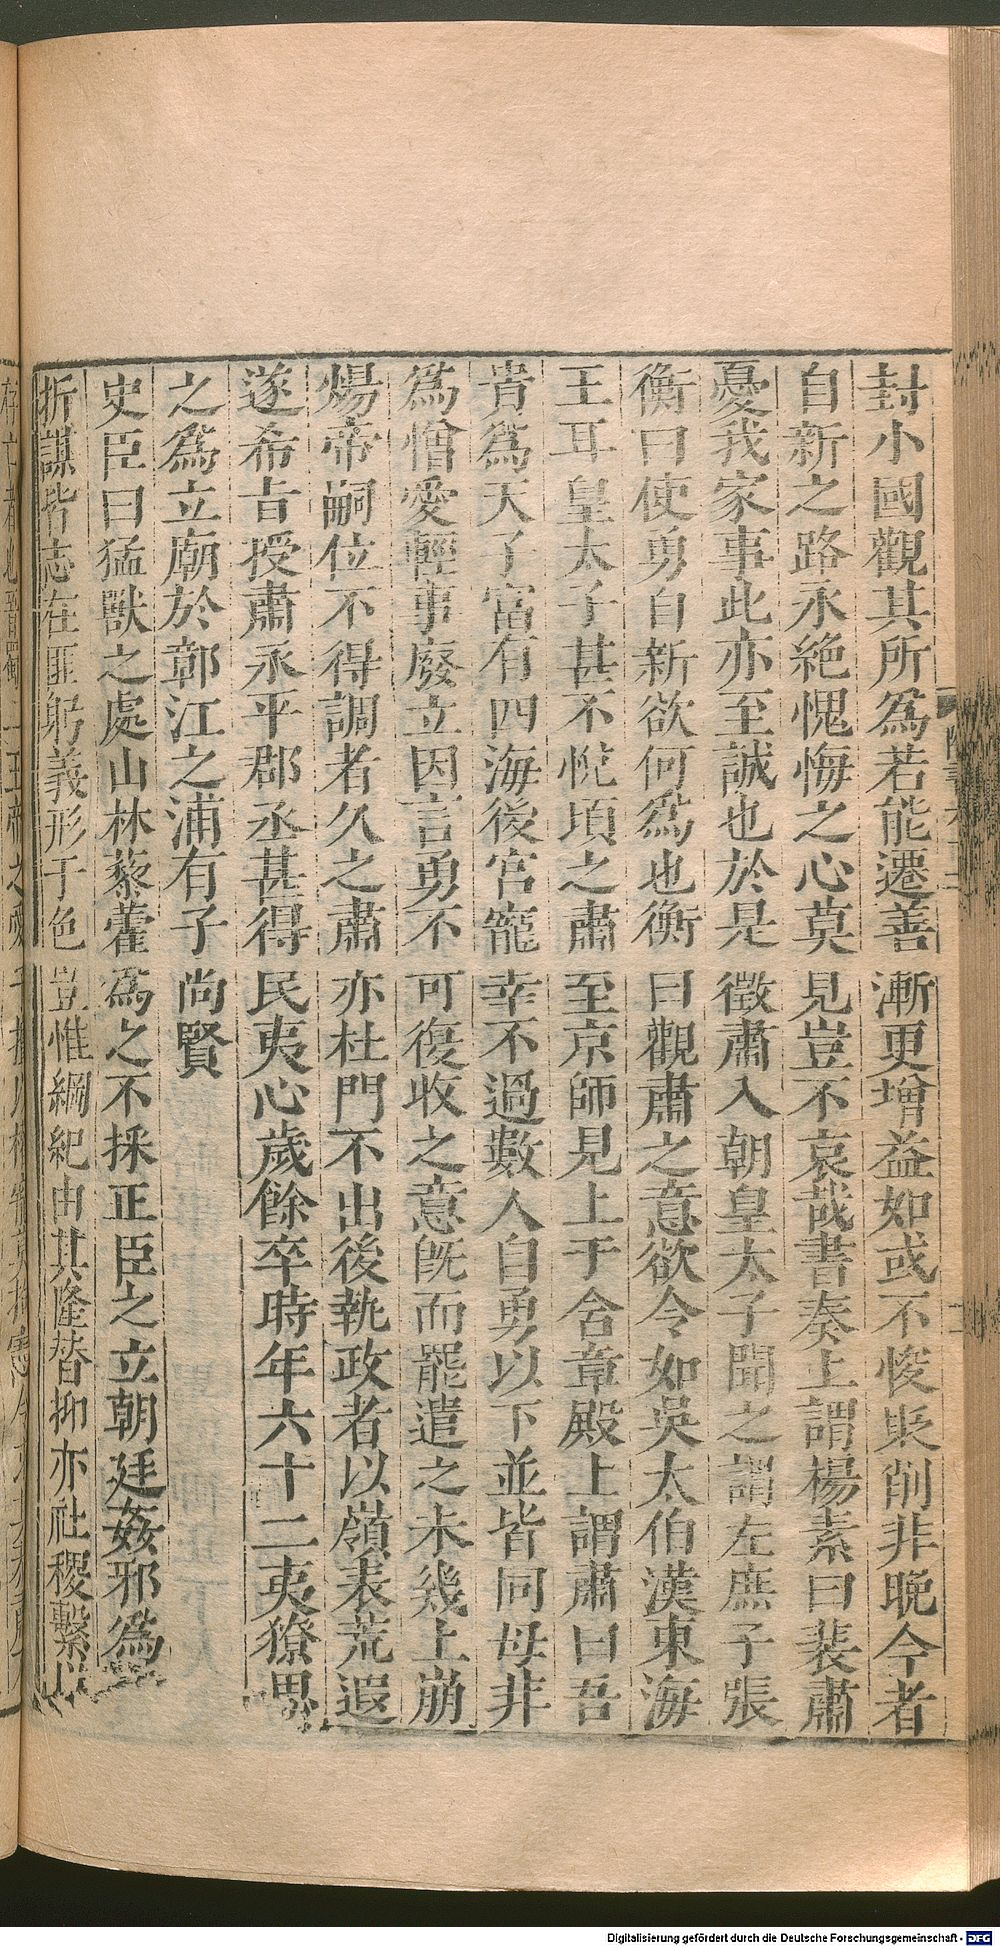 封小國觀其所爲若能遷善漸更增益如或不悛貶削非晚今者
自新之路永絕愧悔之心莫見豈不哀哉書奏上謂楊素曰裴肅
憂我家事此亦至誠也於是徵肅入朝皇太子聞之謂左庶子張
衡曰使勇自新欲何爲也衡曰觀肅之意欲令如吳太伯漢東海
王耳皇太子甚不悅頃之肅至京師見上于含章殿上謂肅曰吾
貴爲天子富有四海後宮寵幸不過數人自勇以下並皆同母非
爲憎愛輕事廢立因言勇不可復收之意旣而罷遣之未幾上崩
煬帝嗣位不得調者久之肅亦杜門不出後執政者以嶺表荒遐
遂希旨授肅永平郡丞甚得民夷心歲餘卒時年六十二夷獠思
之爲立廟於鄣江之浦有子尚賢
史臣曰猛獸之處山林藜藿爲之不採正臣之立朝廷姦邪爲
折謀皆志在匪躬義形于色豈惟綱紀由其隆替抑亦社稷繫以
Digitalisierung gefördert durch die Deutsche Forschungsgemeinschaft - DFG